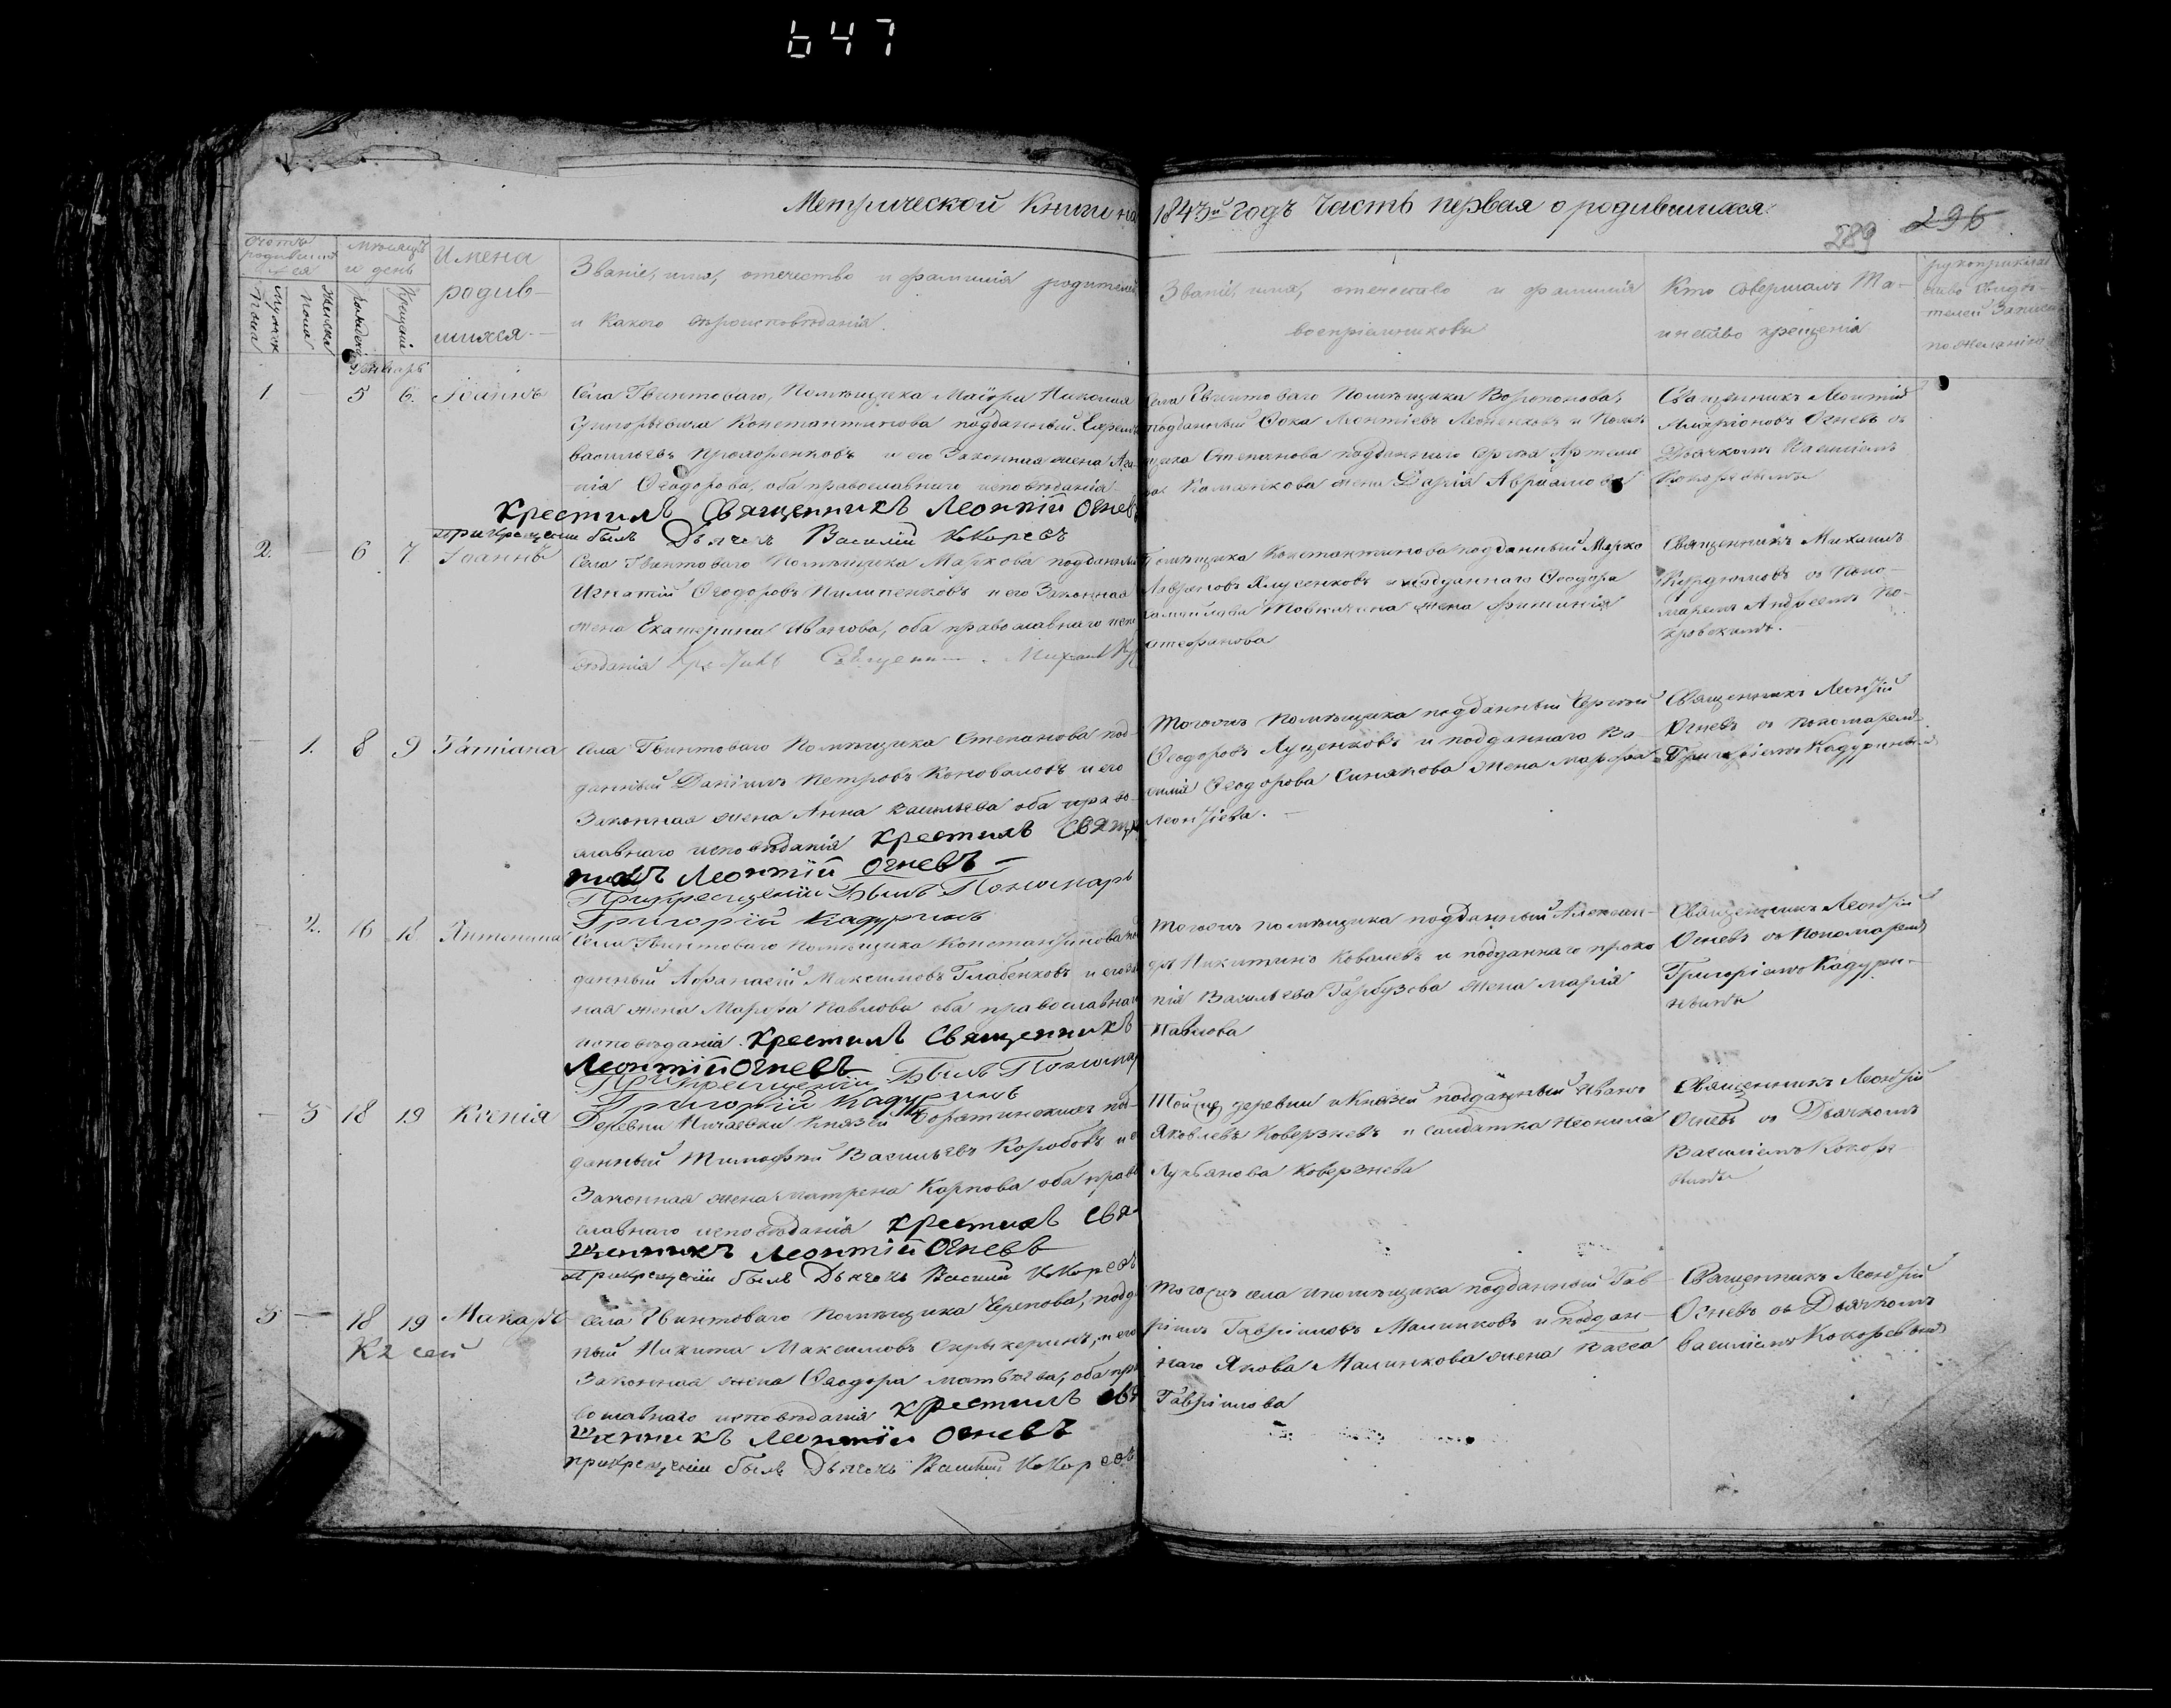 647
Метрической Книги на 1843й годъ Часть первая о родившихся.
289 296
счетъ родившихся
мужеска пола
женска пола
месяцъ и день
рожденія
крещенія
Имена
родив-
шихся
Званіе, имя, отчество и фамилія родителей
и какого вѣроисповѣданія.
Званіе, имя, отечество и фамилія
воспріемниковъ
Кто совершалъ Та-
инство крещенія
рукоприклад
ство свидѣ-
телей записи
по желанію
Январь
1 — 5 6. Іоаннъ
Села Гвинтоваго, Помѣщика Маіора Николая
Григорьевича Константинова подданный
Васильевъ Прохоренковъ и его Законная жена Ага-
пія Ѳеодорова, оба православнаго исповѣданія
Крестилъ Священникъ Леонтій Огневъ
при крещеніи былъ Дьячекъ Василій Кокоревъ
Села Гвинтоваго Помѣщика
подданный Ѳока Леонтіевъ и Помѣ-
щика Степанова подданнаго
жена Дарія Авраамова
Священникъ Леонтій
Огневъ съ
Дьячкомъ Василіемъ
Кокоревымъ
2. — 6 7. Іоаннъ
Села Гвинтоваго Помѣщика Маркова подданный
Игнатій Ѳеодоровъ Пилипенковъ и его Законная
жена Екатерина Иванова, оба православнаго испо
вѣданія Крестилъ Священникъ Михаилъ
Помѣщика Константинова подданный Марко
и подданнаго Ѳеодора
жена
Стефанова
Священникъ Михаилъ
съ Поно-
маремъ Андреемъ По-
кровскимъ.
— 1. 8 9 Татіана
Села Гвинтоваго Помѣщика Степанова под-
данный Даніилъ Петровъ Коноваловъ и его
Законная жена Анна Васильева оба право-
славнаго исповѣданія Крестилъ Священ
никъ Леонтій Огневъ —
При крещеніи Былъ Пономарь
Григорій Кадуринъ
Тогожъ Помѣщика подданный Сергѣй
Ѳеодоровъ Лущенковъ и подданнаго Ва-
силія Ѳеодорова Синякова жена Марфа
Леонтіева. —
Священникъ Леонтій
Огневъ съ Пономаремъ
Григоріемъ Кадуринымъ
— 2. 16 18 Антонина
Села Гвинтоваго Помѣщика Константинова под
данный Афанасій Максимовъ Глабенковъ и его
ная жена Марфа Павлова оба православнаго
исповѣданія. Крестилъ Священникъ
Леонтій Огневъ
При крещеніи Былъ Пономарь
Григорій Кадуринъ
Тогожъ помѣщика подданный Алексан-
дръ Никитинъ Ковалевъ и подданнаго Проко
пія Васильева Гарбузова жена Марія
Павлова
Священникъ Леонтій
Огневъ съ Пономаремъ
Григоріемъ Кадури-
нымъ
— 3 18 19 Ксенія
Деревни Ничаевки Князей Борятинскихъ под-
данный Тимофѣй Васильевъ Коробовъ и его
Законная жена Матрена Карпова оба право
славнаго исповѣданія Крестилъ Свя
щенникъ Леонтій Огневъ
При крещеніи былъ Дьячекъ Василій Кокоревъ
Той же деревни и Князей подданный Иванъ
Яковлевъ Коверзневъ и солдатка Неонила
Лукьянова Коверзнева
Священникъ Леонтій
Огневъ съ Дьячкомъ
Василіемъ Кокоре-
вымъ
3 — 18 19 Макаръ
Села Гвинтоваго Помѣщика Черепова, подда
ный Никита Максимовъ и его
Законная жена Ѳеодора Матвѣева, оба пра
вославнаго исповѣданія Крестилъ Свя
щенникъ Леонтій Огневъ
при крещеніи былъ Дьячекъ Василій Кокоревъ
Тогожъ села и помѣщика подданный Гав-
ріилъ Гавріиловъ Малишковъ и поддан-
наго Якова Малишкова жена Васса
Гавріилова
Священникъ Леонтій
Огневъ съ Дьячкомъ
Василіемъ Кокоревымъ